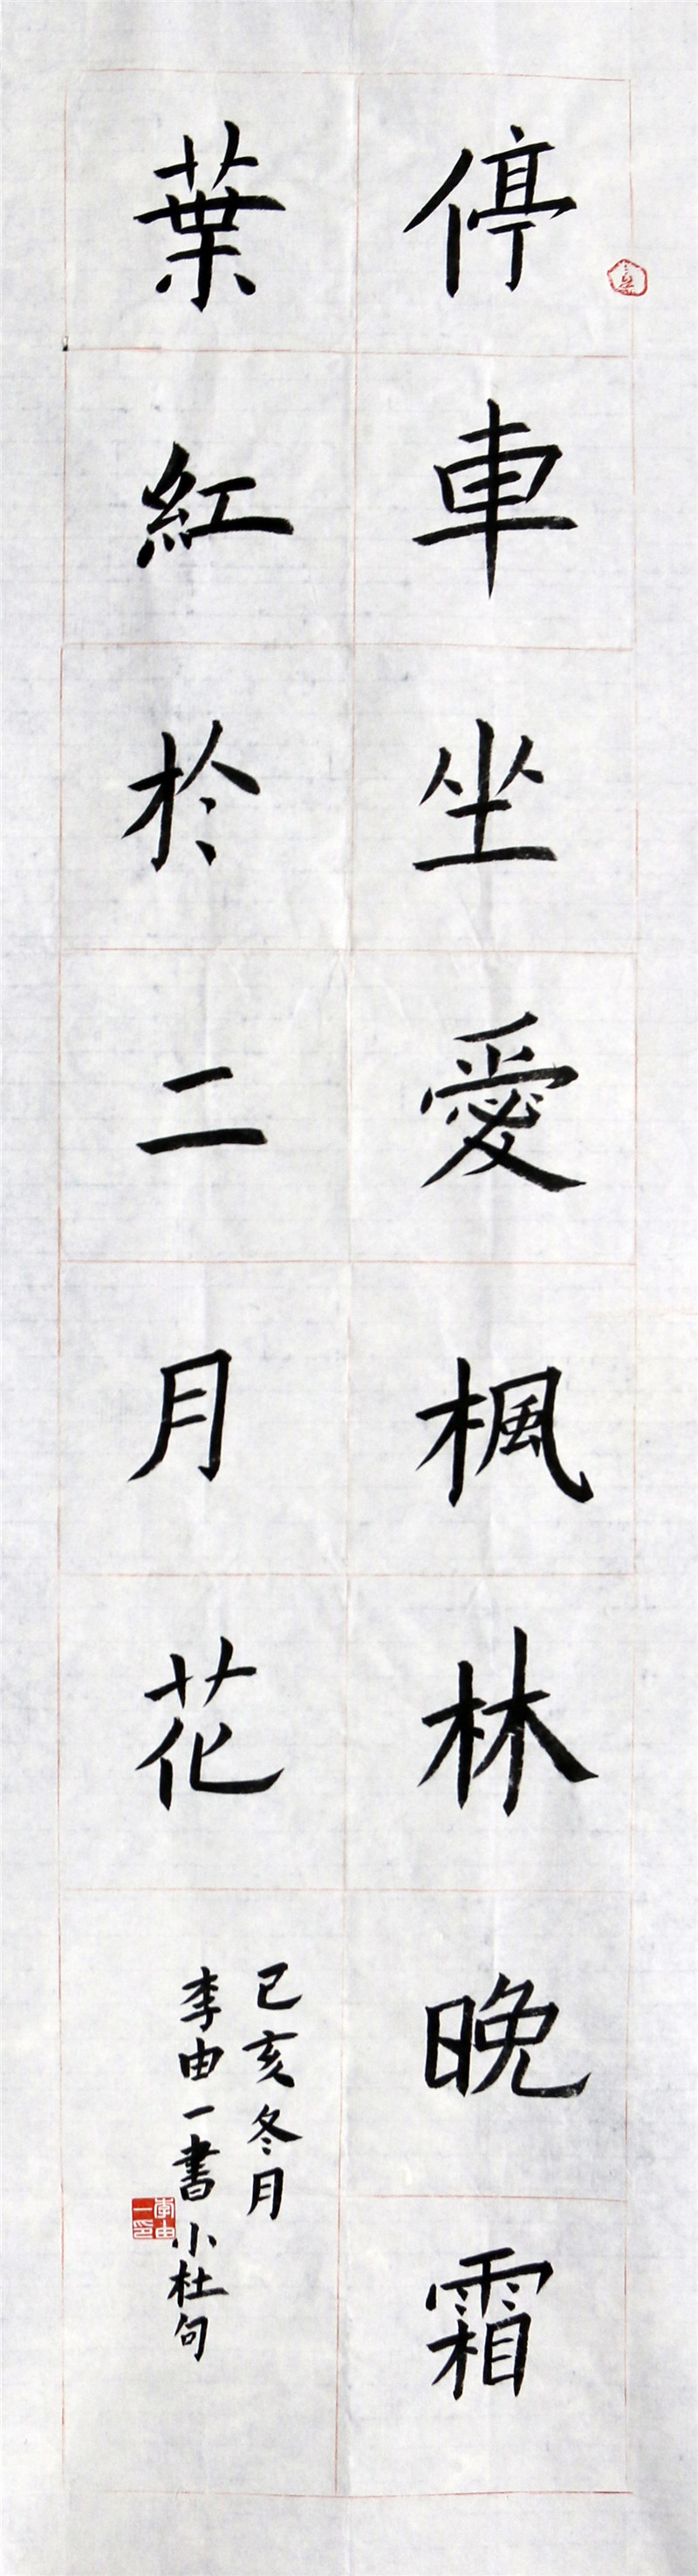 停車坐愛楓林晚霜
葉紅於二月花
己亥冬月
李由一書小杜句
李由一印